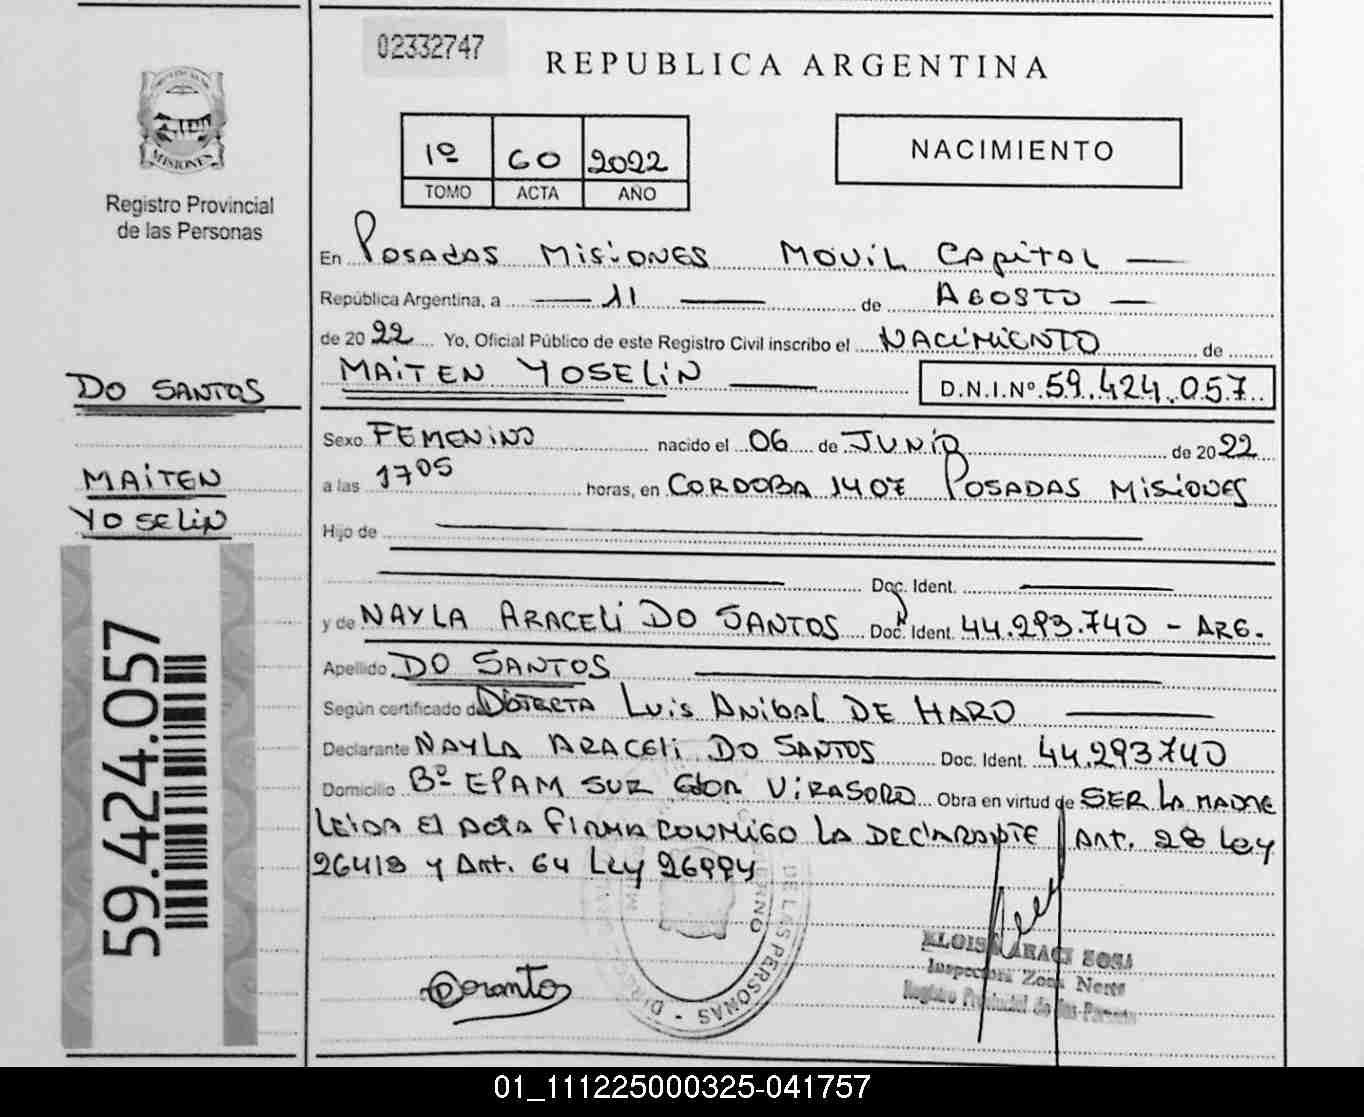 02332747
REPUBLICA ARGENTINA
1º 60 2022
TOMO ACTA AÑO
NACIMIENTO
MISIONES
Registro Provincial
de las Personas
En POSADAS MISIONES MOVIL CAPITAL
República Argentina, a 11 de AGOSTO
de 2022 Yo, Oficial Público de este Registro Civil inscribo el NACIMIENTO de
MAITEN YOSELIN D.N.I.Nº 59.424.057
DO SANTOS
MAITEN
YOSELIN
59.424.057
Sexo FEMENINO nacido el 06 de JUNIO de 2022
a las 1705 horas, en CORDOBA 1407 POSADAS MISIONES
Hijo de
Doc. Ident.
y de NAYLA ARACELI DO SANTOS Doc. Ident. 44.293.740 - ARG.
Apellido DO SANTOS
Según certificado de LUIS ANIBAL DE HARO
Declarante NAYLA ARACELI DO SANTOS Doc. Ident. 44.293740
Domicilio Bº EPAM SUR Gdor VIRASORO Obra en virtud de SER LA MADRE
LEIDA El ACTA FIRMA CONMIGO LA DECLARANTE ART. 28 Ley
26413 y Art. 64 Ley 26994
DE LAS PERSONAS
Inspectora Zona Norte
Registro Provincial de las Personas
01_111225000325-041757